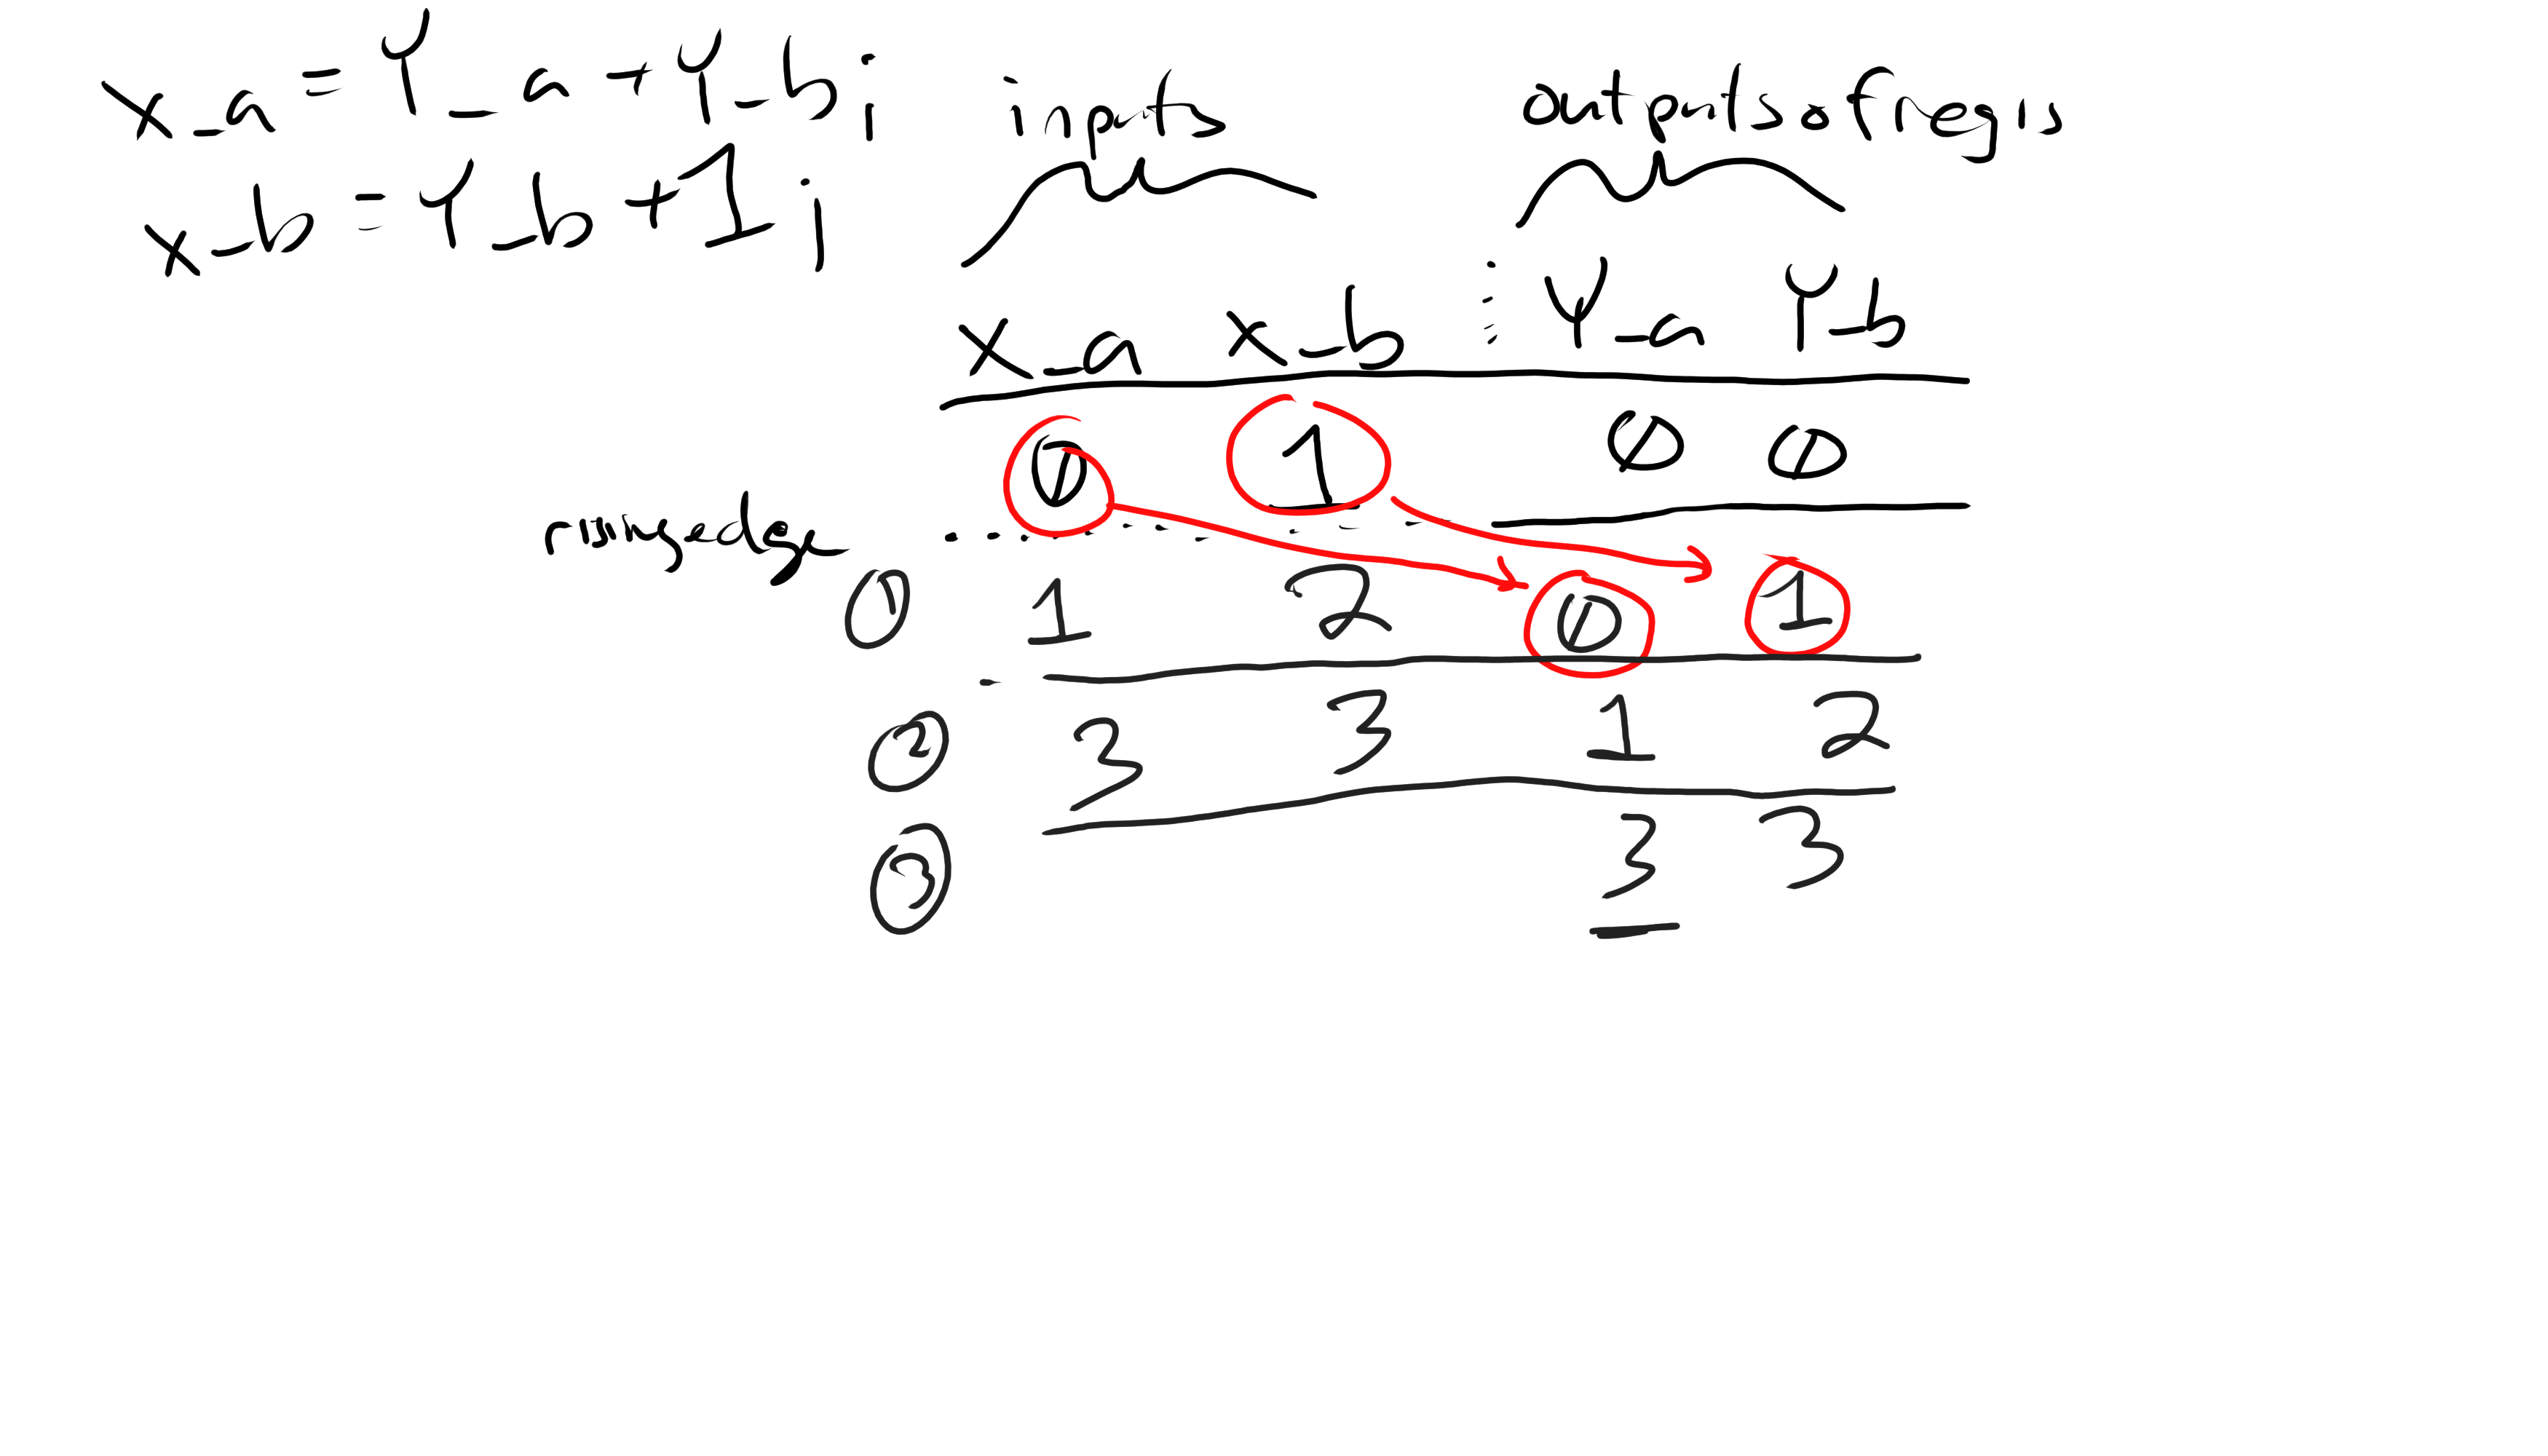 x_a = Y_a + Y_b;
x_b = Y_b + 1;
inputs
outputs of regis
x_a x_b Y_a Y_b
0 1 0 0
rising edge
① 1 2 0 1
② 3 3 1 2
③ 3 3